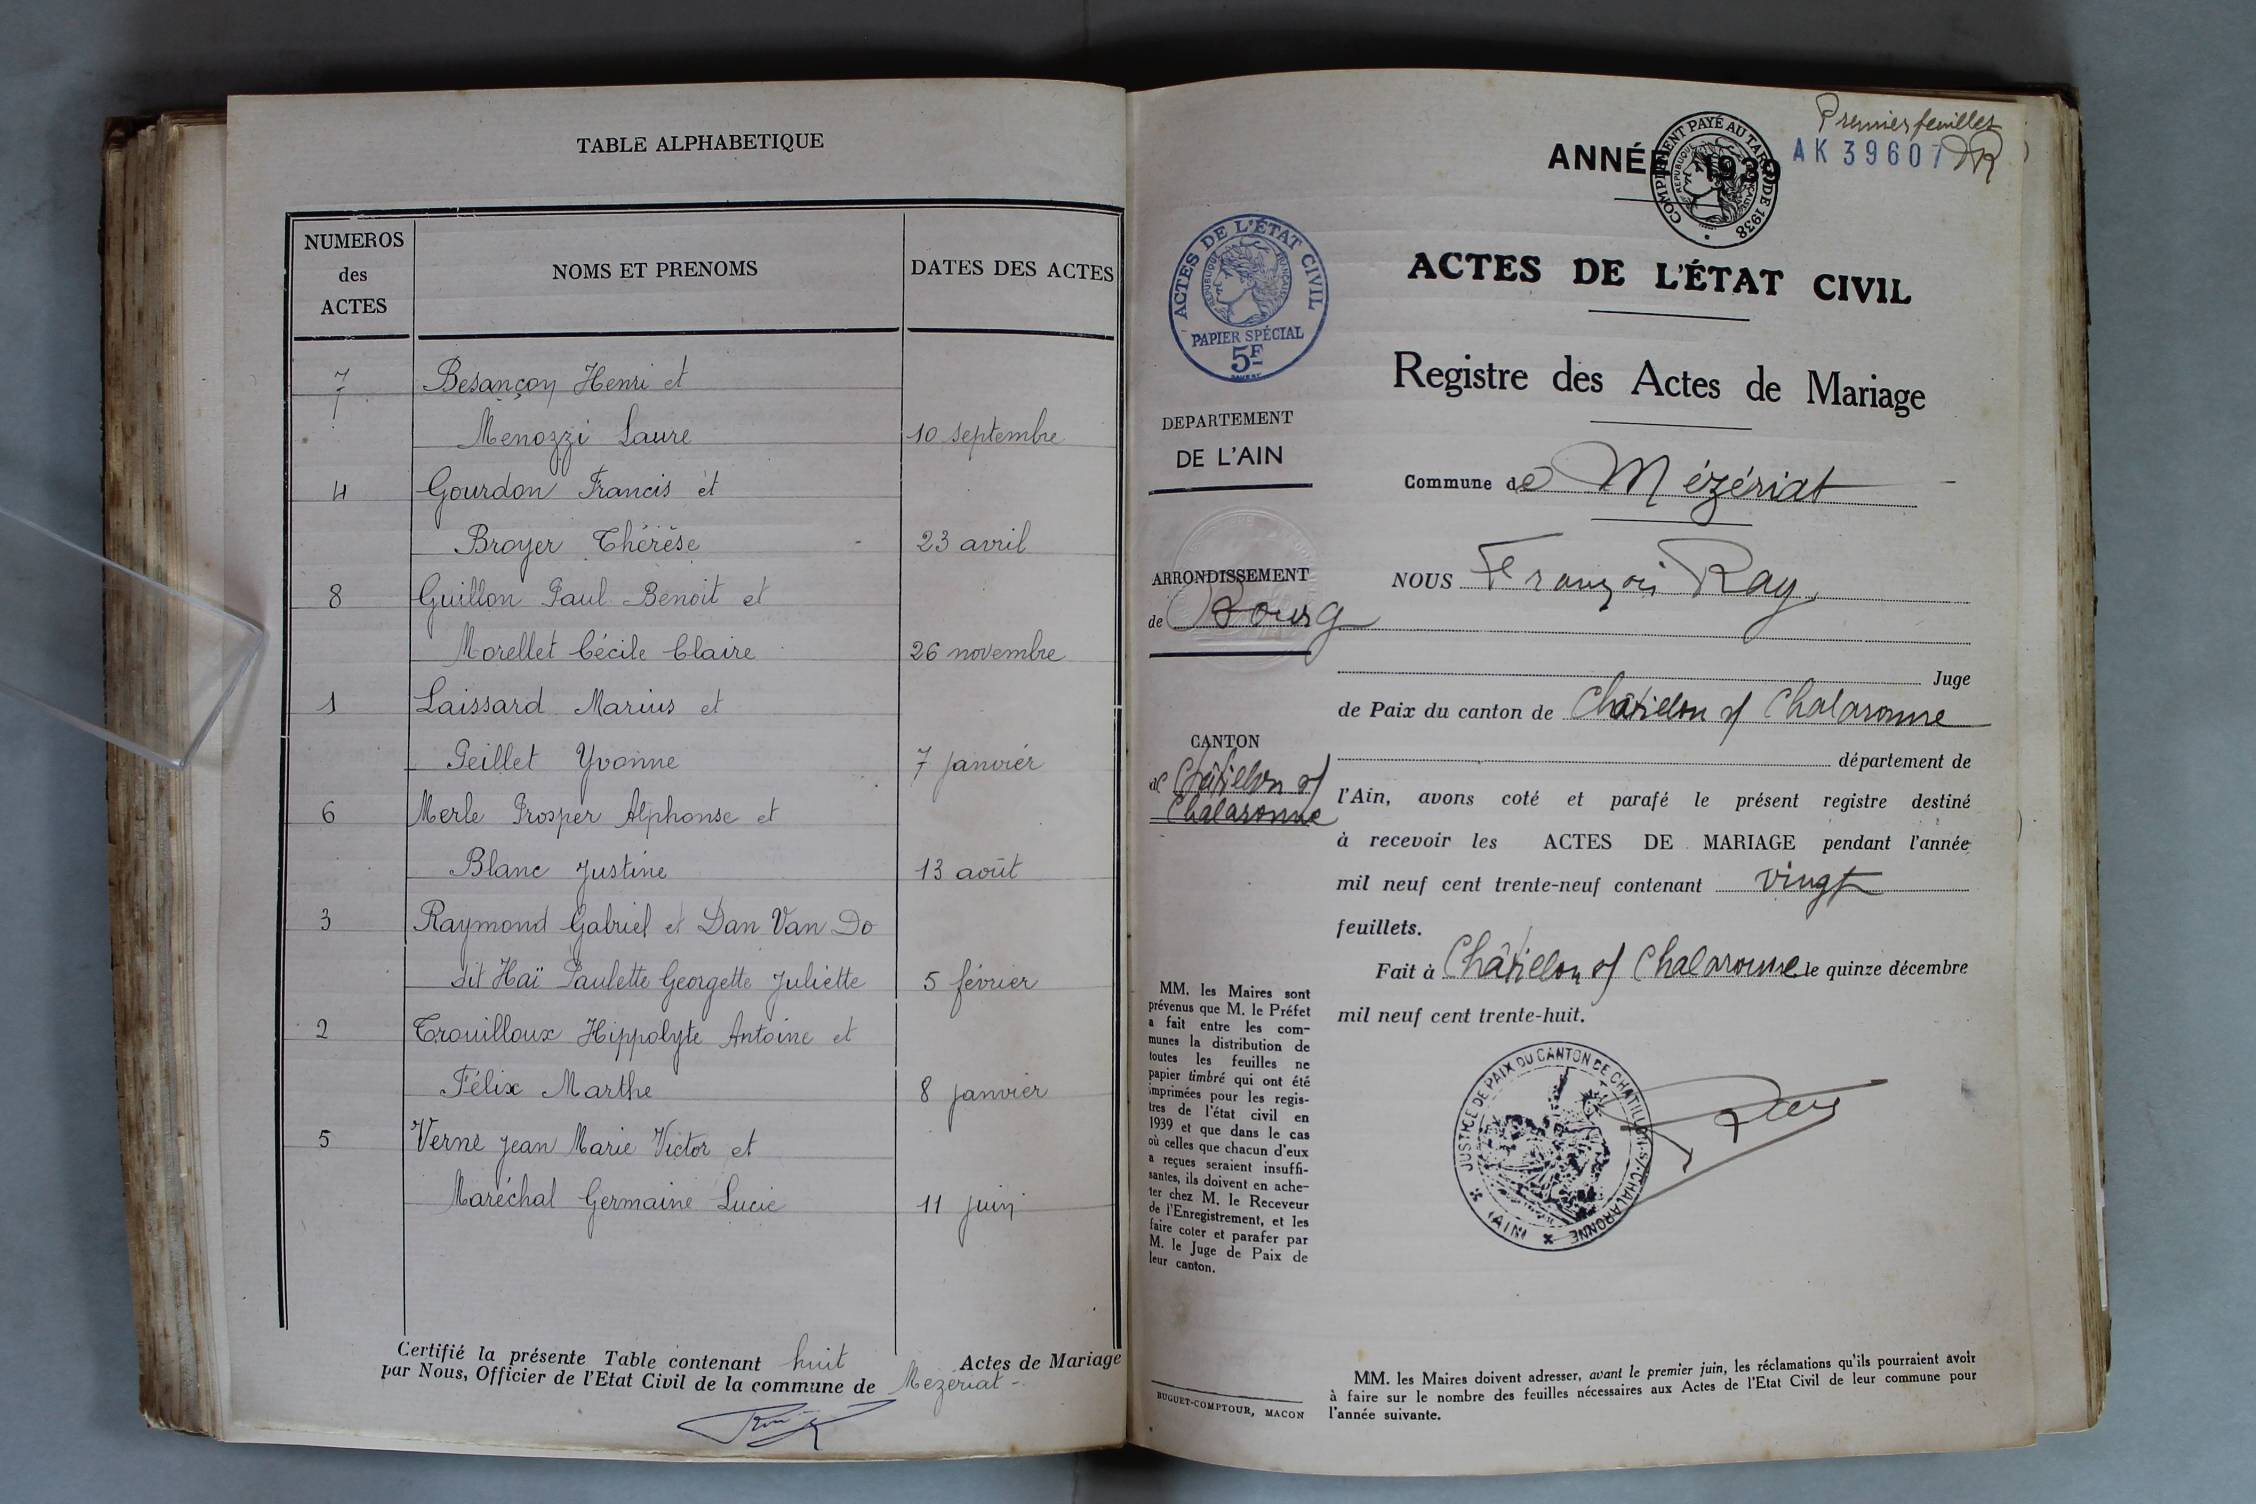 TABLE ALPHABETIQUE
NUMEROS
des
ACTES
NOMS ET PRENOMS
DATES DES ACTES
7 Besançon Henri et
Menozzi Laure 10 septembre
4 Gourdon Francis et
Broyer Thérèse 23 avril
8 Guillon Paul Benoit et
Morellet Cécile Claire 26 novembre
1 Laissard Marius et
Peillet Yvonne 7 janvier
6 Merle Prosper Alphonse et
Blanc Justine 13 août
3 Raymond Gabriel et Dan Van Do
dit Haï Paulette Georgette Juliette 5 février
2 Trouilloux Hippolyte Antoine et
Félix Marthe 8 janvier
5 Verne Jean Marie Victor et
Maréchal Germaine Lucie 11 juin
Certifié la présente Table contenant huit Actes de Mariage
par Nous, Officier de l'Etat Civil de la commune de Mézériat -
Premier feuillet
AK 39607
ANNÉE 1939
COMPLÉMENT PAYÉ AU TARIF DE 1938
ACTES DE L'ÉTAT CIVIL
RÉPUBLIQUE FRANÇAISE
PAPIER SPÉCIAL
5F
DEPARTEMENT
DE L'AIN
ARRONDISSEMENT
de Bourg
CANTON
de Châtillon s/
Chalaronne
MM. les Maires sont
prévenus que M. le Préfet
a fait entre les com-
munes la distribution de
toutes les feuilles ne
papier timbré qui ont été
imprimées pour les regis-
tres de l'état civil en
1939 et que dans le cas
où celles que chacun d'eux
a reçues seraient insuffi-
santes, ils doivent en ache-
ter chez M. le Receveur
de l'Enregistrement, et les
faire coter et parafer par
M. le Juge de Paix de
leur canton.
BUGUET-COMPTOUR, MACON
ACTES DE L'ÉTAT CIVIL
Registre des Actes de Mariage
Commune de Mézériat
NOUS François Ray,
Juge
de Paix du canton de Châtillon s/ Chalaronne
département de
l'Ain, avons coté et parafé le présent registre destiné
à recevoir les ACTES DE MARIAGE pendant l'année
mil neuf cent trente-neuf contenant vingt
feuillets.
Fait à Châtillon s/ Chalaronne, le quinze décembre
mil neuf cent trente-huit.
JUSTICE DE PAIX DU CANTON DE CHATILLON S/ CHALARONNE
(AIN)
MM. les Maires doivent adresser, avant le premier juin, les réclamations qu'ils pourraient avoir
à faire sur le nombre des feuilles nécessaires aux Actes de l'Etat Civil de leur commune pour
l'année suivante.